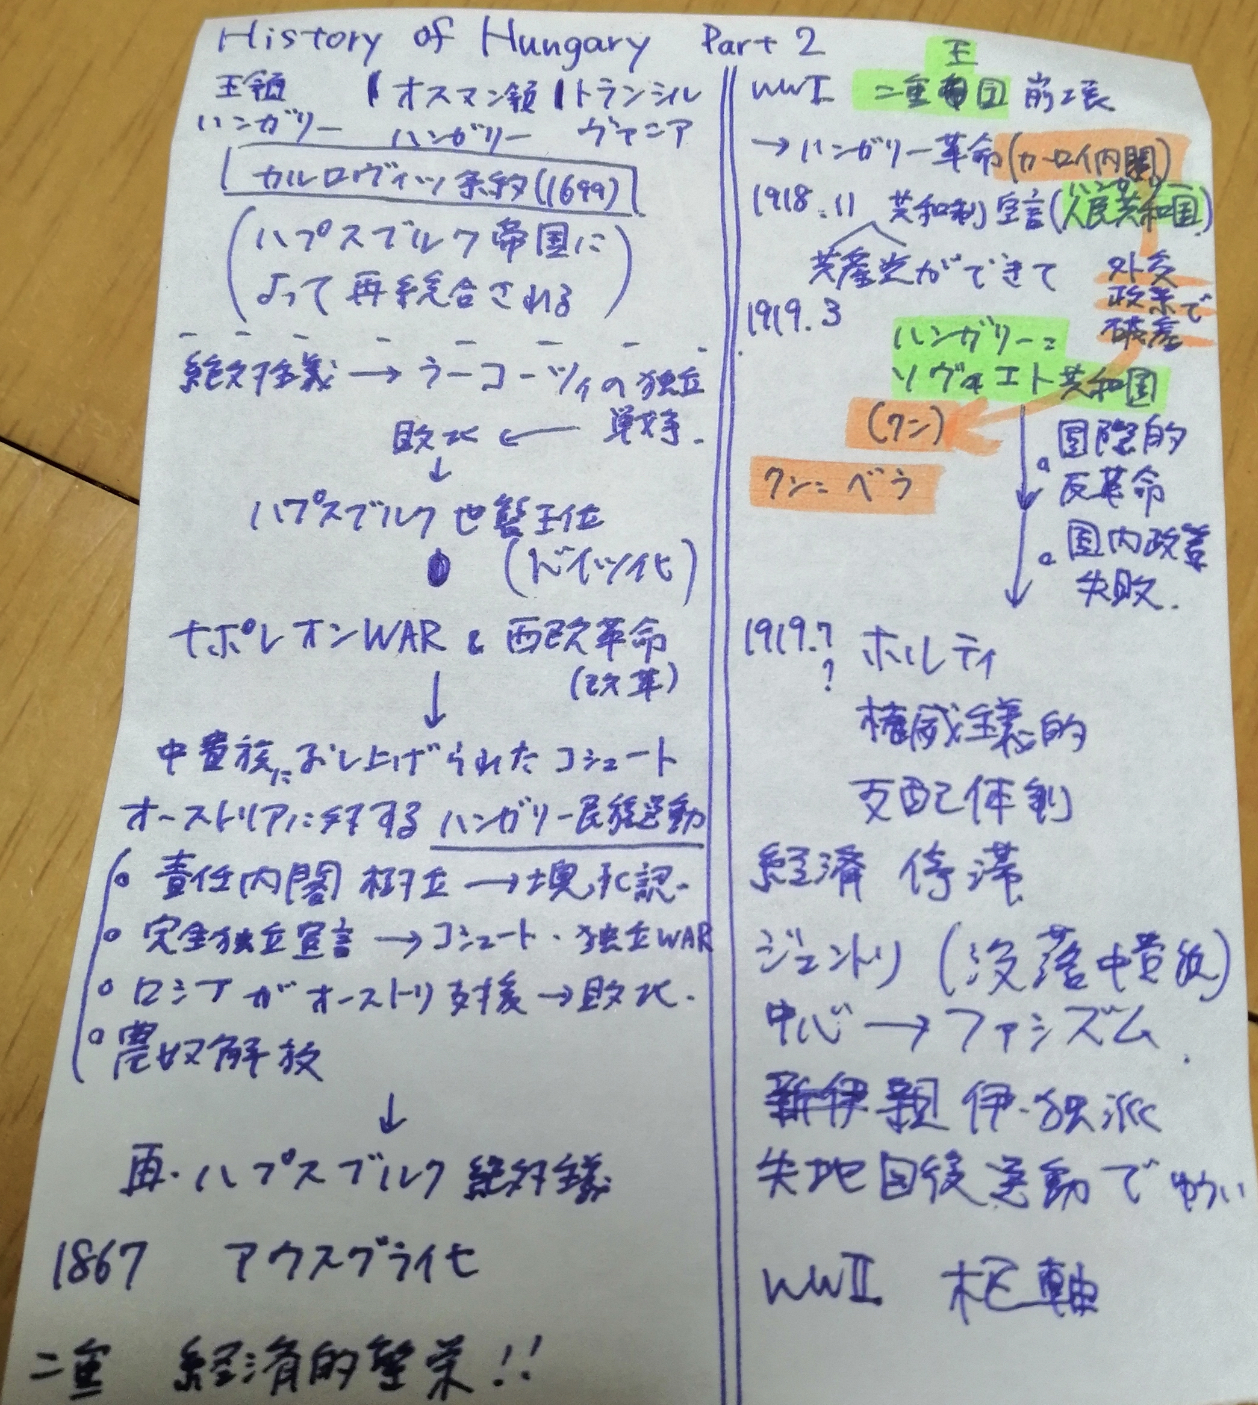 History of Hungary Part 2
王領 | オスマン領 | トランシル
ハンガリー ハンガリー ヴァニア
カルロヴィッツ条約(1699)
(ハプスブルク帝国に
よって再統合される)
絶対主義→ラーコーツィの独立
敗北 ← 戦争.
↓
ハプスブルク世襲王位
(ドイツ化)
ナポレオンWAR & 西欧革命
(改革)
↓
中貴族におし上げられたコシュート
オーストリアに対する ハンガリー民族運動
責任内閣 樹立→墺承認.
完全独立宣言→コシュート・独立WAR
ロシアがオーストリ支援→敗北.
農奴解放
↓
再・ハプスブルク絶対主義
1867 アウスグライヒ
二重 経済的繁栄!!
WWI 二重帝国 崩壊
王
→ハンガリー革命(カーロイ内閣)
1918.11 共和制宣言(ハンガリー
人民共和国)
共産党ができて
外交
政策で
破産
1919.3
ハンガリー=
ソヴィエト共和国
(クン)
クン=ベラ
国際的
反革命
国内政策
失敗.
1919.?
?
ホルティ
権威主義的
支配体制
経済 停滞
ジェントリ (没落中貴族)
中心→ファシズム.
親伊・独派
失地回復運動で
WWII 枢軸